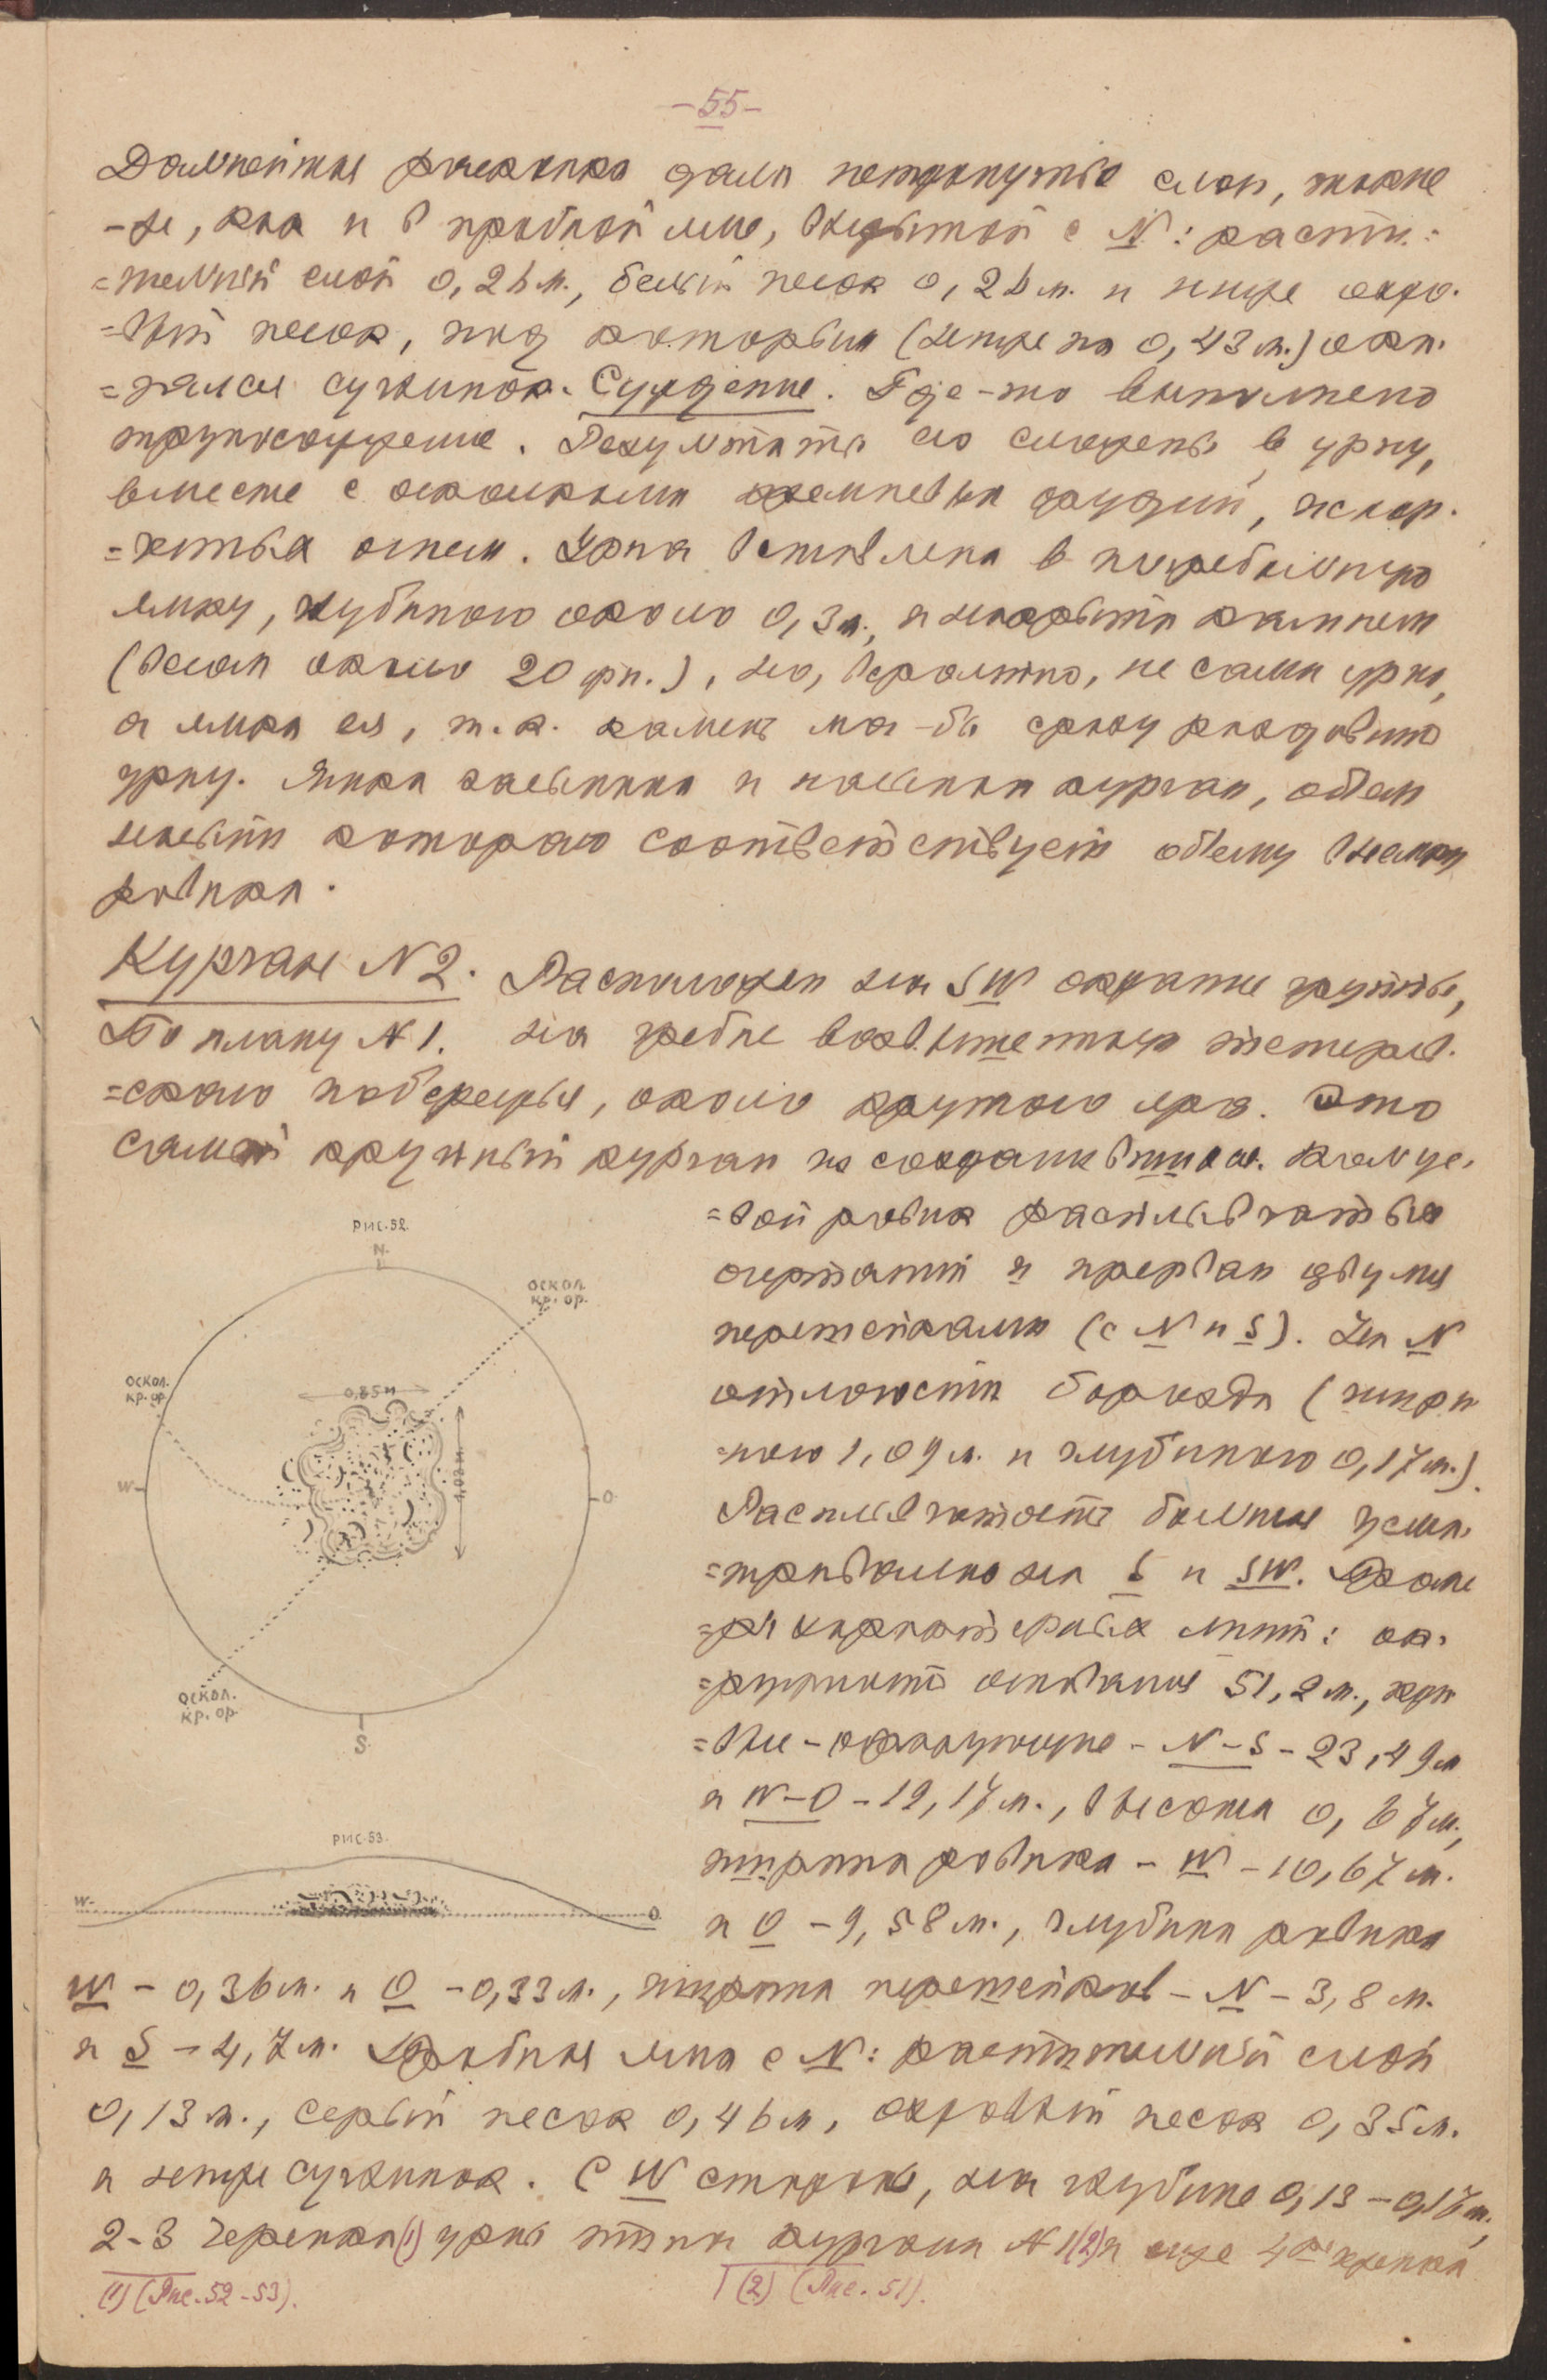 -55-
Дальнейшая раскопка дала нетронутые слои, такие
-же, как и в пробной яме, вырытой с N: расти-
=тельный слой 0,26 м., белый песок 0,26 м. и ниже охро-
=вый песок, под которым (ниже на 0,43 м.) ока-
=зался суглинок. Суждение. Где-то выполнено
трупосожжение. Результаты его сложены в урну,
вместе с осколками кремневых орудий, испор-
=ченных огнем. Урна вставлена в погребальную
ямку, глубиною около 0,3 м., и накрыта камнем
(весом около 20 фн.), но, вероятно, не сама урна,
а ямка ея, т.к. камень мог-бы сразу раздавить
урну. Ямка засыпана и насыпан курган, объем
насыпи которого соответствует объему выемки
ровика.
Курган N 2. Расположен на SW окраине группы,
по плану N 1. на гребне возвышенного
=ского побережья, около крутого яра. Это
самый крупный курган по сохранившимся. Кольце-
=вой ровик расплывчатых
очертаний и прерван двумя
перешейками (с N и S). На N
отлогости борозда (шири-
=ною 1,09 м. и глубиною 0,17 м.).
Расплывчатость больше усма-
=тривалась на S и SW. Разме-
=ры характерных линий: ок-
=ружность основания 51,2 м., кри-
=вые-образующие - N-S - 23,49 м
и W-O - 19,17 м., высота 0,67 м.,
ширина ровика - W - 10,67 м.
и O - 9,58 м., глубина ровика
W - 0,36 м. и O - 0,33 м., ширина перешейков - N - 3,8 м.
и S - 4,7 м. Пробная яма с N: растительный слой
0,13 м., серый песок 0,46 м, охровый песок 0,35 м.
и ниже суглинок. С W стороны, на глубине 0,13 - 0,17 м.,
2-3 черепка (1) урны типа кургана N 1 (2) и еще 4
(1) (Рис. 52-53).
(2) (Рис. 51).
РИС. 52.
N.
ОСКОЛ.
КР. ОР.
ОСКОЛ.
КР. ОР.
0,85 м
1,02 м.
W-
-O
ОСКОЛ.
КР. ОР.
S.
РИС. 53.
W-
O